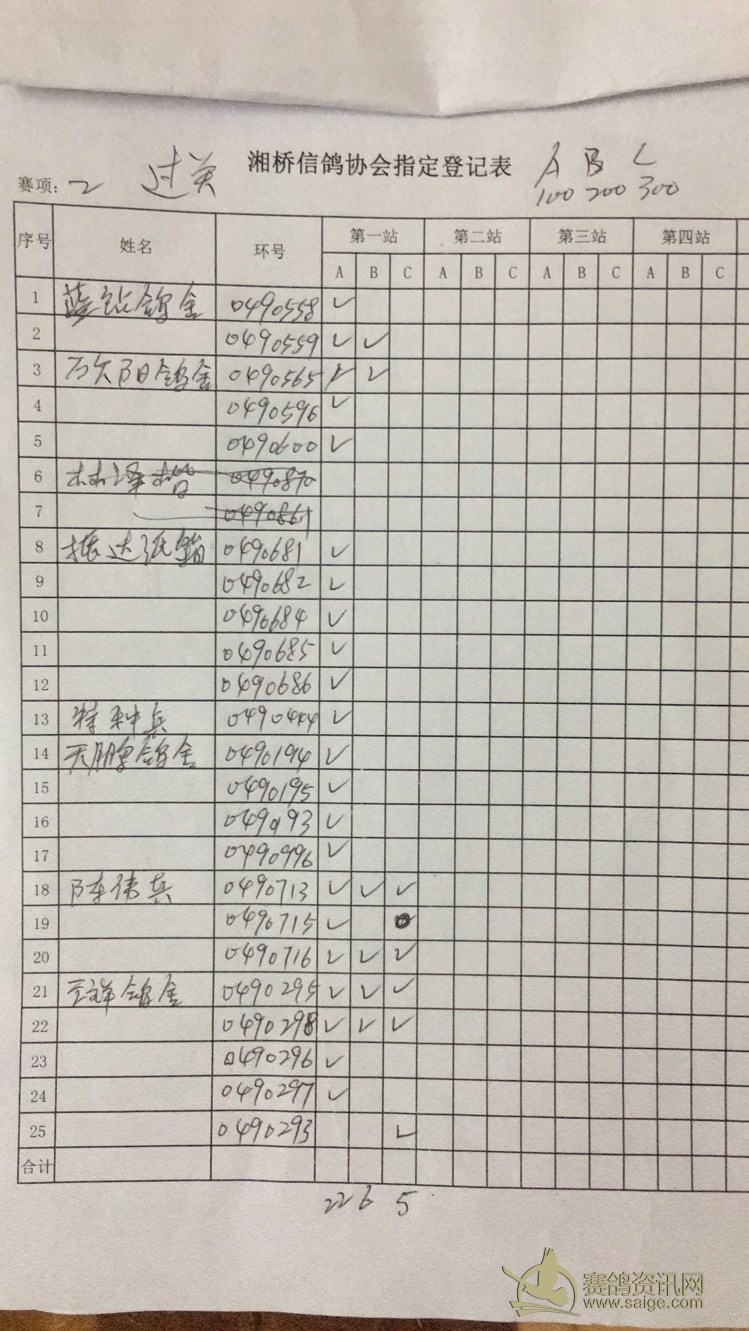 湘桥信鸽协会指定登记表 A B C
赛项: 2 过关 100 200 300
序号 姓名 环号 第一站 第二站 第三站 第四站
A B C A B C A B C A B C
1 蓝钻鸽舍 0490558 ✓
2 0490559 ✓ ✓
3 万欠阳鸽舍 0490565 ✓ ✓
4 0490596 ✓
5 0490600 ✓
6 林泽楷 0490870
7 0490861
8 振达纸箱 0490681 ✓
9 0490682 ✓
10 0490684 ✓
11 0490685 ✓
12 0490686 ✓
13 特种兵 0490444 ✓
14 天鹏鸽舍 0490194 ✓
15 0490195 ✓
16 049193 ✓
17 0490996 ✓
18 陈伟兵 0490713 ✓ ✓ ✓
19 0490715 ✓
20 0490716 ✓ ✓ ✓
21 鸽舍 0490295 ✓ ✓ ✓
22 0490298 ✓ ✓ ✓
23 0490296 ✓
24 0490297 ✓
25 0490293 ✓
合计
22 6 5
赛鸽资讯网
www.saige.com